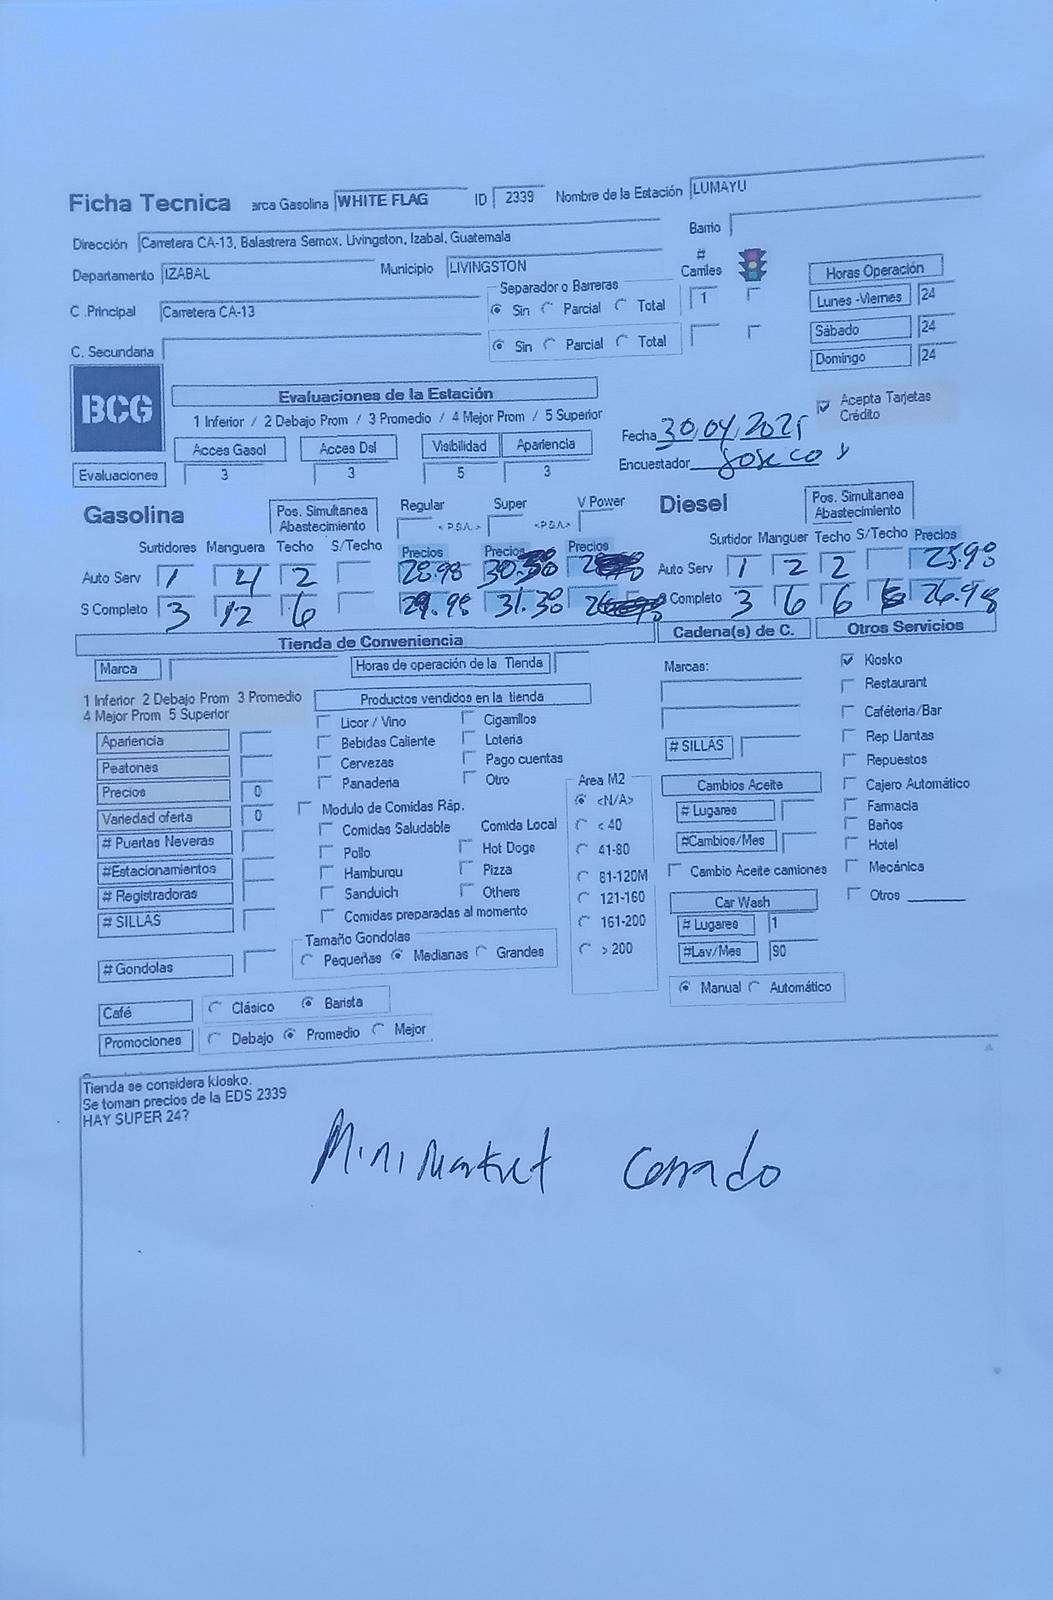 Ficha Tecnica arca Gasolina WHITE FLAG ID 2339 Nombre de la Estación LUMAYU
Dirección Carretera CA-13, Balastrera Semox, Livingston, Izabal, Guatemala Barrio
Departamento IZABAL Municipio LIVINGSTON # Carriles Horas Operación
C .Principal Carretera CA-13 Separador o Barreras Sin Parcial Total 1 Lunes -Viernes 24
C. Secundaria Sin Parcial Total Sábado 24
Domingo 24
BCG
Evaluaciones de la Estación
1 Inferior / 2 Debajo Prom / 3 Promedio / 4 Mejor Prom / 5 Superior
Acepta Tarjetas Crédito
Acces Gasol Acces Dsl Visibilidad Apariencia Fecha 30/04/2025
Evaluaciones 3 3 5 3 Encuestador
Gasolina Pos. Simultanea Abastecimiento Regular Super V Power Diesel Pos. Simultanea Abastecimiento
<P.S.A.> <P.S.A.>
Surtidores Manguera Techo S/Techo Precios Precios Precios Surtidor Manguer Techo S/Techo Precios
Auto Serv 1 4 2 28.98 30.38 Auto Serv 1 2 2 25.98
S Completo 3 12 6 29.98 31.38 Completo 3 6 6 26.98
Tienda de Conveniencia Cadena(s) de C. Otros Servicios
Marca Horas de operación de la Tienda Marcas: Kiosko
1 Inferior 2 Debajo Prom 3 Promedio
4 Mejor Prom 5 Superior
Productos vendidos en la tienda Restaurant
Licor / Vino Cigarrillos Caféteria/Bar
Apariencia Bebidas Caliente Loteria # SILLAS Rep Llantas
Peatones Cervezas Pago cuentas Repuestos
Precios 0 Panaderia Otro Area M2 Cambios Aceite Cajero Automático
Variedad oferta 0 Modulo de Comidas Ráp. <N/A> # Lugares Farmacia
# Puertas Neveras Comidas Saludable Comida Local < 40 #Cambios/Mes Baños
#Estacionamientos Pollo Hot Dogs 41-80 Hotel
# Registradoras Hamburqu Pizza 81-120M Cambio Aceite camiones Mecánica
# SILLAS Sanduich Others 121-160 Car Wash Otros
Comidas preparadas al momento 161-200 # Lugares 1
# Gondolas Tamaño Gondolas Pequeñas Medianas Grandes > 200 #Lav/Mes 90
Manual Automático
Café Clásico Barista
Promociones Debajo Promedio Mejor
Tienda se considera kiosko.
Se toman precios de la EDS 2339
HAY SUPER 24?
Minimarket Cerrado